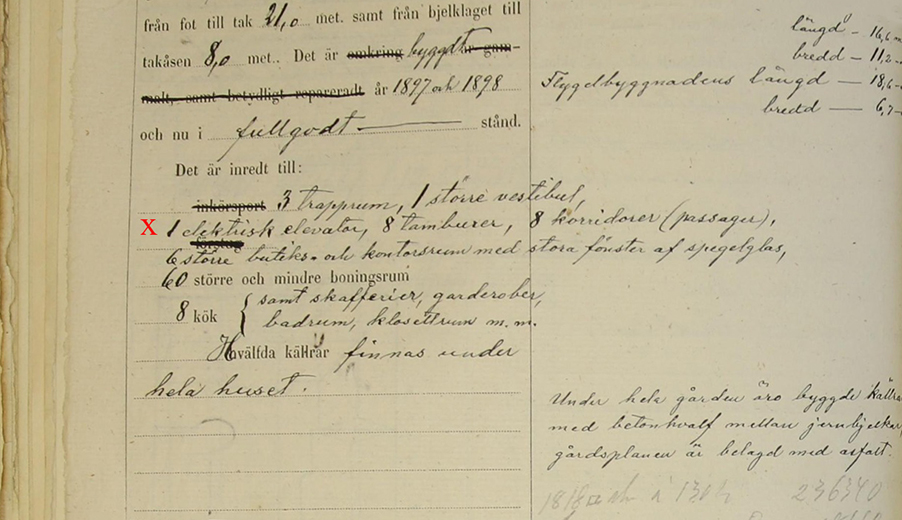 från fot till tak 21,0 met. samt från bjelklaget till
takåsen 8,0 met.. Det är omkring byggdt år gam-
malt, samt betydligt repareradt år 1897 och 1898
och nu i fullgodt stånd.
Det är inredt till:
inkörsport 3 trapprum, 1 större vestibul,
X 1 elektrisk elevator, 8 tamburer, 8 korridorer (passager),
förstug
6 större butiks- och kontorsrum med stora fönster af spegelglas,
60 större och mindre boningsrum
8 kök { samt skafferier, garderober,
badrum, klosettrum m. m.
Hvälfda källrar finnas under
hela huset.
längd — 16,6 m
bredd — 11,2 —
Flygelbyggnadens längd — 18,6 —
bredd — 6,7 —
Under hela gården äro byggde källra
med betonhvalf mellan jernbjelkar,
gårdsplanen är belagd med asfalt.
236340